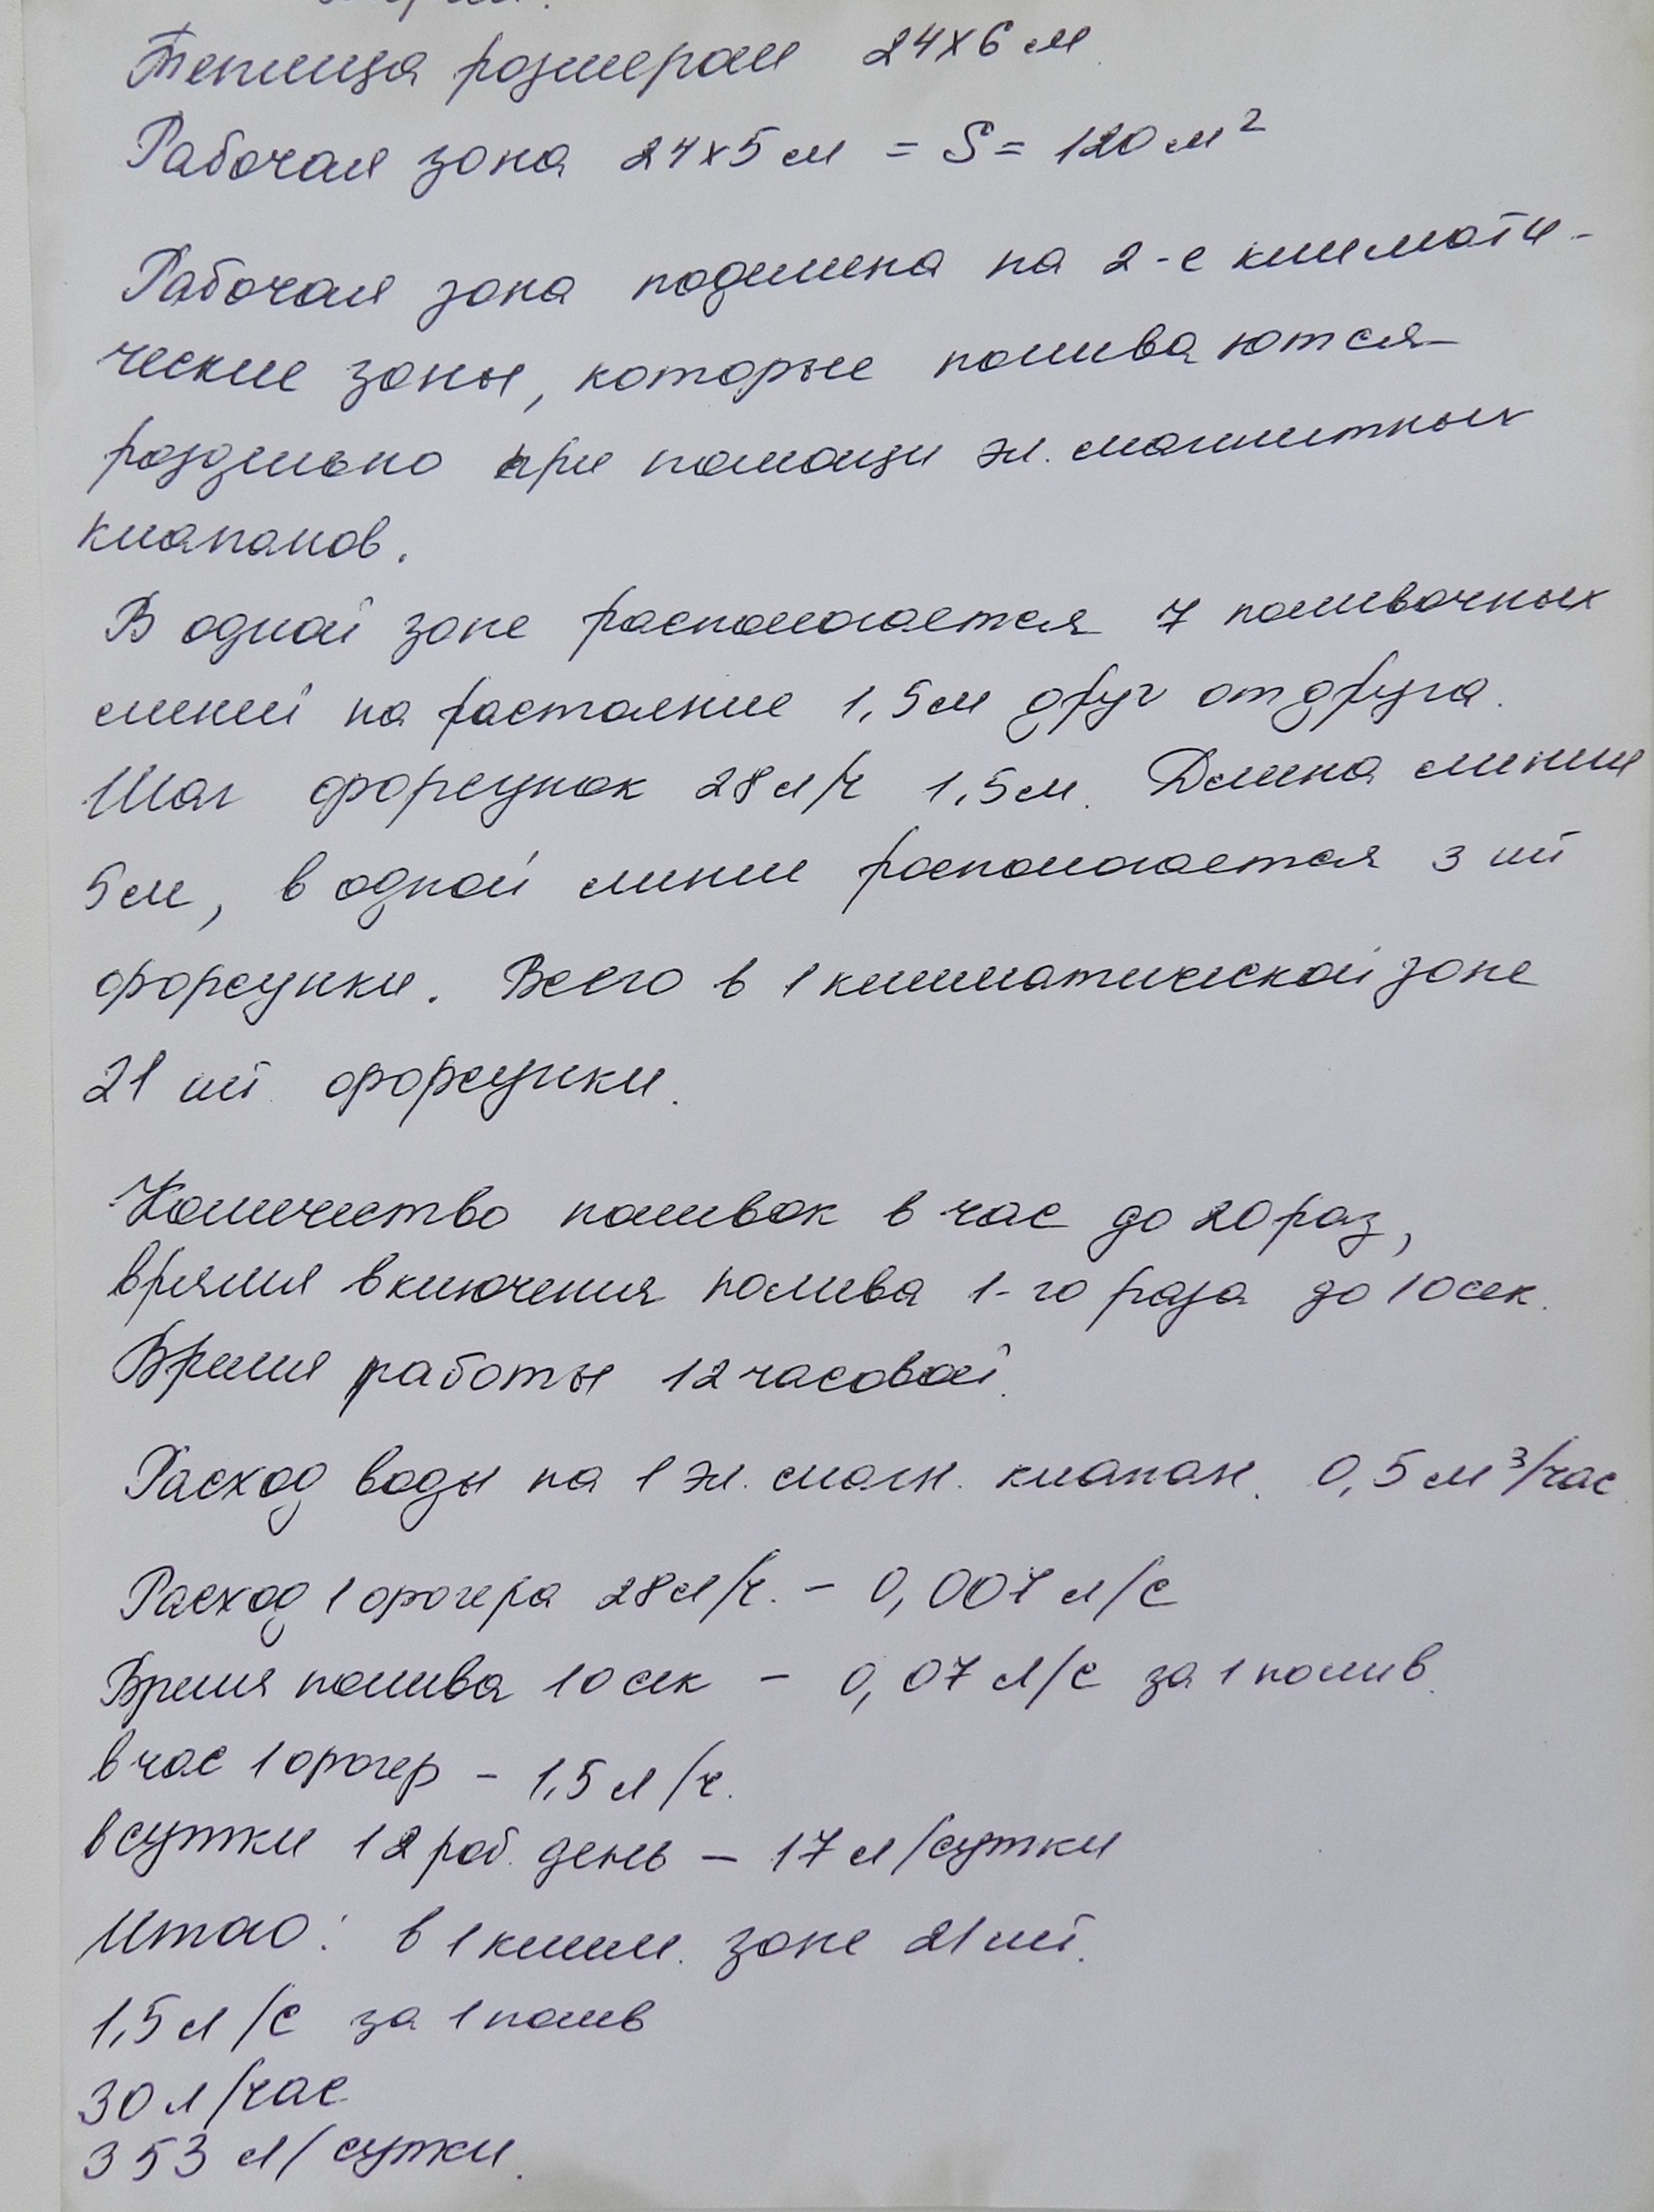 Теплица размером 24х6 м.
Рабочая зона 24х5 м = S = 120 м²
Рабочая зона поделена на 2-е климати-
ческие зоны, которые поливаются
раздельно при помощи эл. магнитных
клапанов.
В одной зоне располагается 7 поливочных
линий на растояние 1,5 м друг от друга.
Шаг форсунок 28 л/ч 1,5 м. Длина линии
5 м, в одной линии располагается 3 шт
форсунки. Всего в 1 климатической зоне
21 шт. форсунки.
Количество поливок в час до 20 раз,
время включения полива 1-го раза до 10 сек.
Время работы 12 часовой.
Расход воды на 1 эл. магн. клапан. 0,5 м³/час.
Расход 1 фогера 28 л/ч. – 0,007 л/с
Время полива 10 сек – 0,07 л/с за 1 полив.
в час 1 фогер – 1,5 л/ч.
в сутки 12 раб. день – 17 л/сутки
Итого: в 1 клим. зоне 21 шт.
1,5 л/с за 1 полив
30 л/час
353 л/сутки.